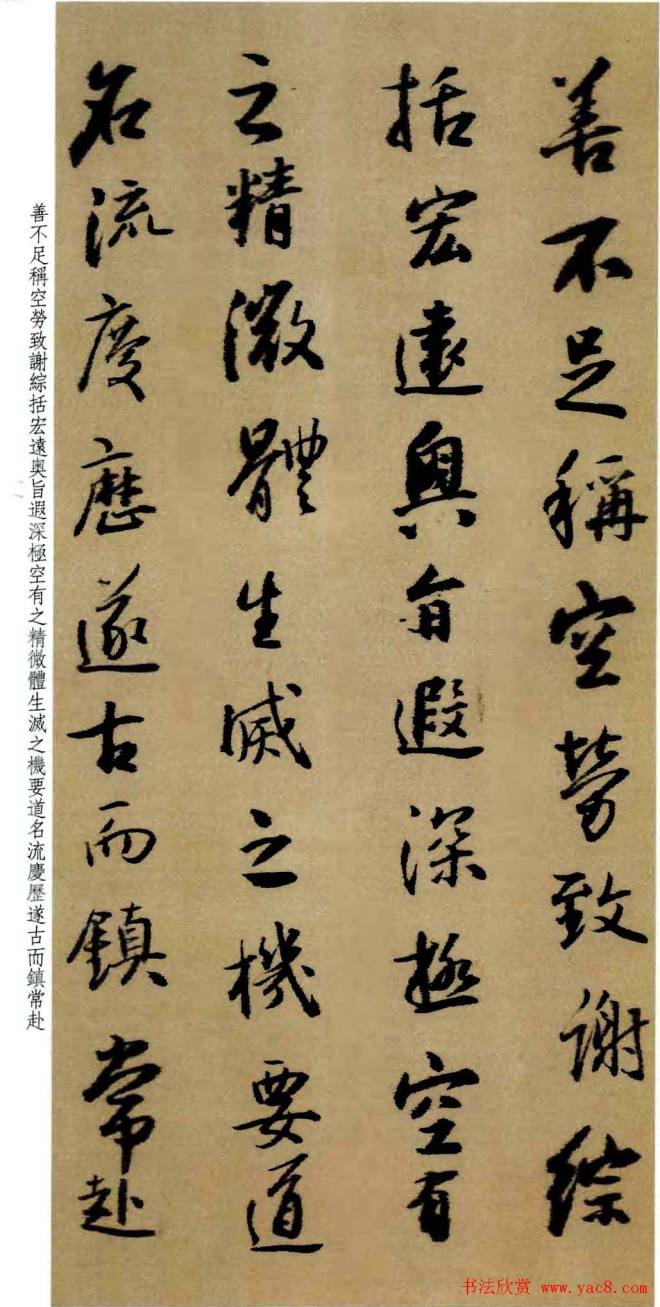 善不足稱空勞致謝綜
括宏遠奧旨遐深極空有
之精微體生滅之機要道
名流慶歷遂古而鎮常赴
善不足稱空勞致謝綜括宏遠奥旨遐深極空有之精微體生滅之機要道名流慶歷遂古而鎮常赴
书法欣赏 www.yac8.com